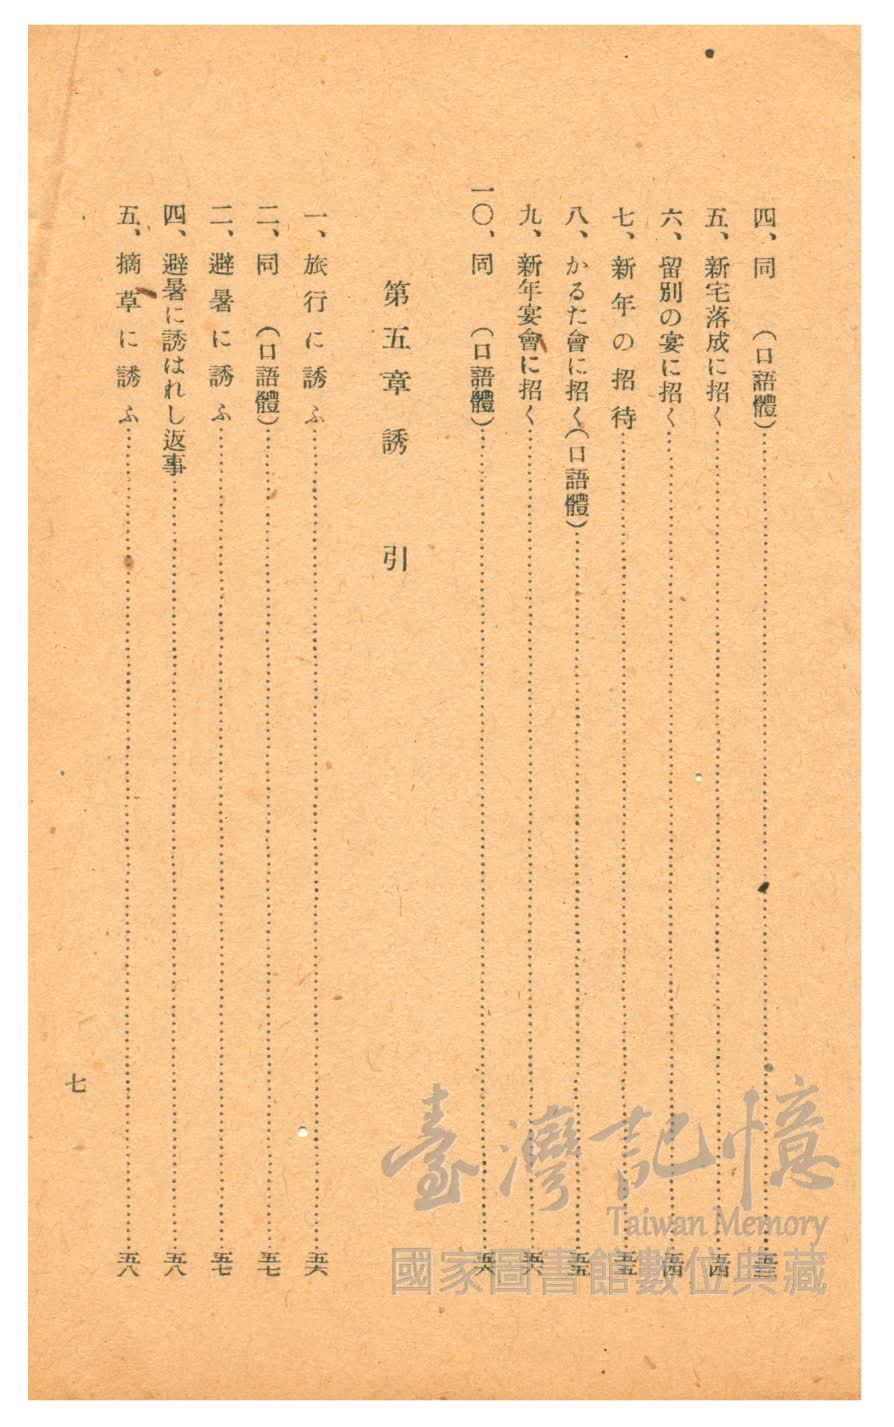 四、同 （口語體）……五三
五、新宅落成に招く……五四
六、留別の宴に招く……五四
七、新年の招待……五五
八、かるた會に招く（口語體）……五五
九、新年宴會に招く……五六
一〇、同 （口語體）……五六
第五章 誘引
一、旅行に誘ふ……五六
二、同 （口語體）……五七
二、避暑に誘ふ……五七
四、避暑に誘はれし返事……五八
五、摘草に誘ふ……五八
七
臺灣記憶
Taiwan Memory
國家圖書館數位典藏